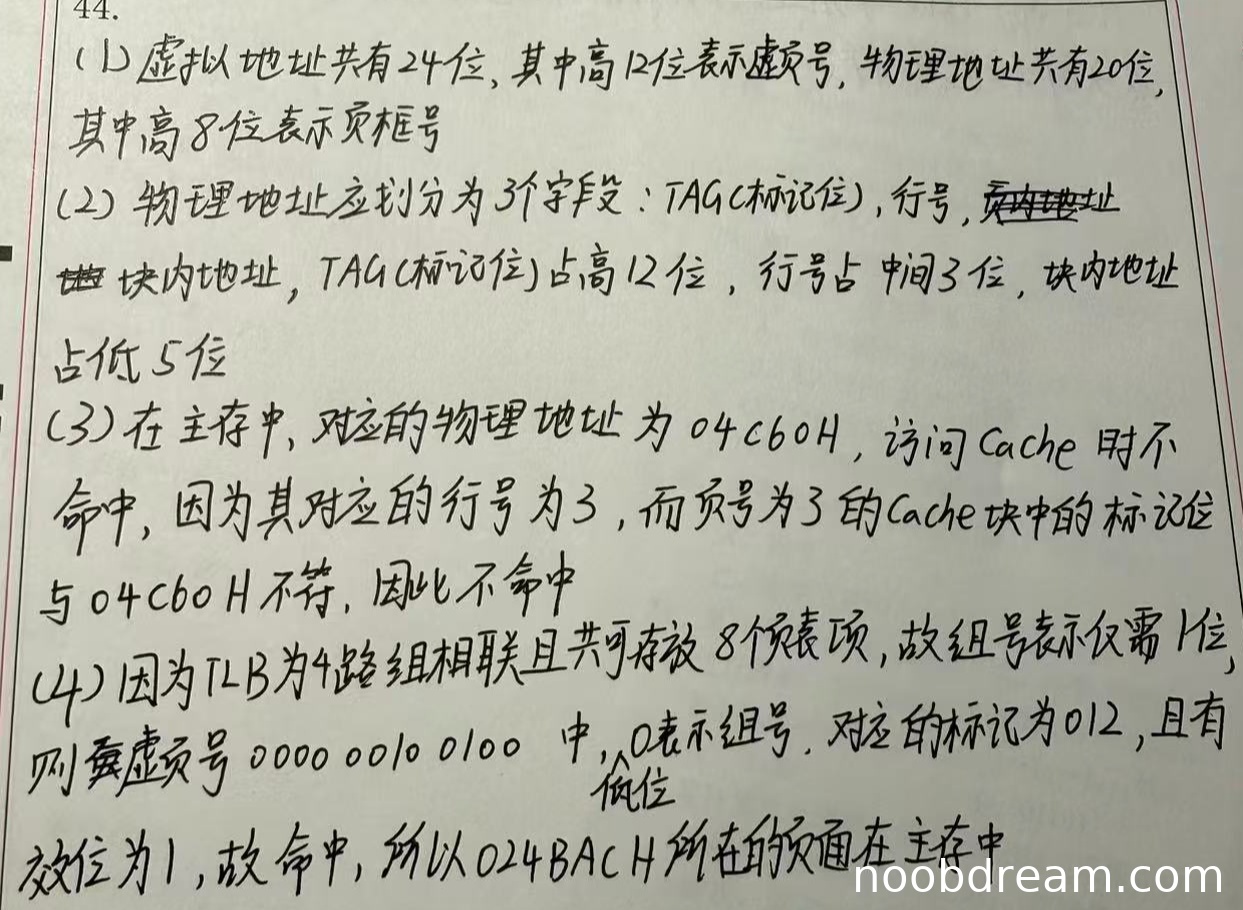 44.
(1) 虚拟地址共有24位, 其中高12位表示虚页号, 物理地址共有20位,
其中高8位表示页框号
(2) 物理地址应划分为3个字段: TAG(标记位), 行号, 页内地址
块内地址, TAG(标记位)占高12位, 行号占中间3位, 块内地址
占低5位
(3) 在主存中, 对应的物理地址为04C60H, 访问Cache时不
命中, 因为其对应的行号为3, 而页号为3的Cache块中的标记位
与04C60H不符, 因此不命中
(4) 因为TLB为4路组相联且共可存放8个页表项, 故组号表示仅需1位,
则虚页号 0000 0010 0100 中, 低位0表示组号. 对应的标记为012, 且有
效位为1, 故命中, 所以024BACH所在的页面在主存中
noobdream.com